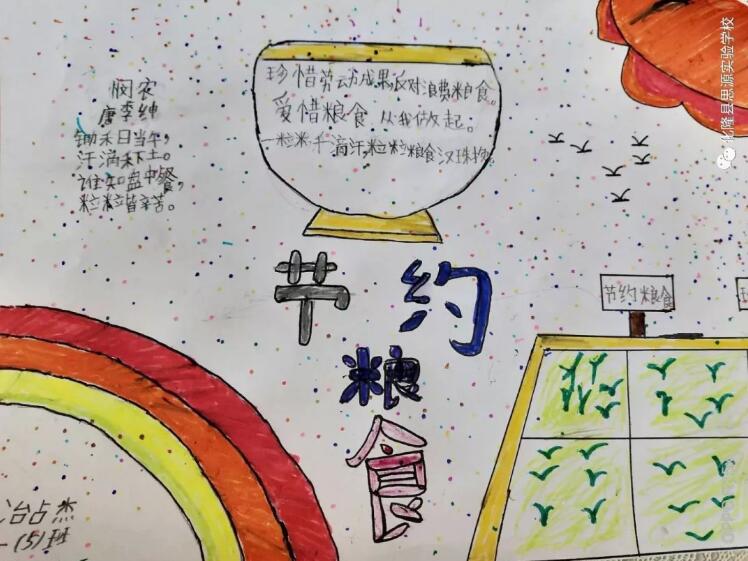 悯农
唐李绅
锄禾日当午,
汗滴禾下土。
谁知盘中餐,
粒粒皆辛苦。
珍惜劳动成果反对浪费粮食。
爱惜粮食 从我做起。
一粒米千滴汗,粒粒粮食汉珠
节约
粮
食
节约粮食
冶占杰
(5)班
化隆县思源实验学校
OPPO